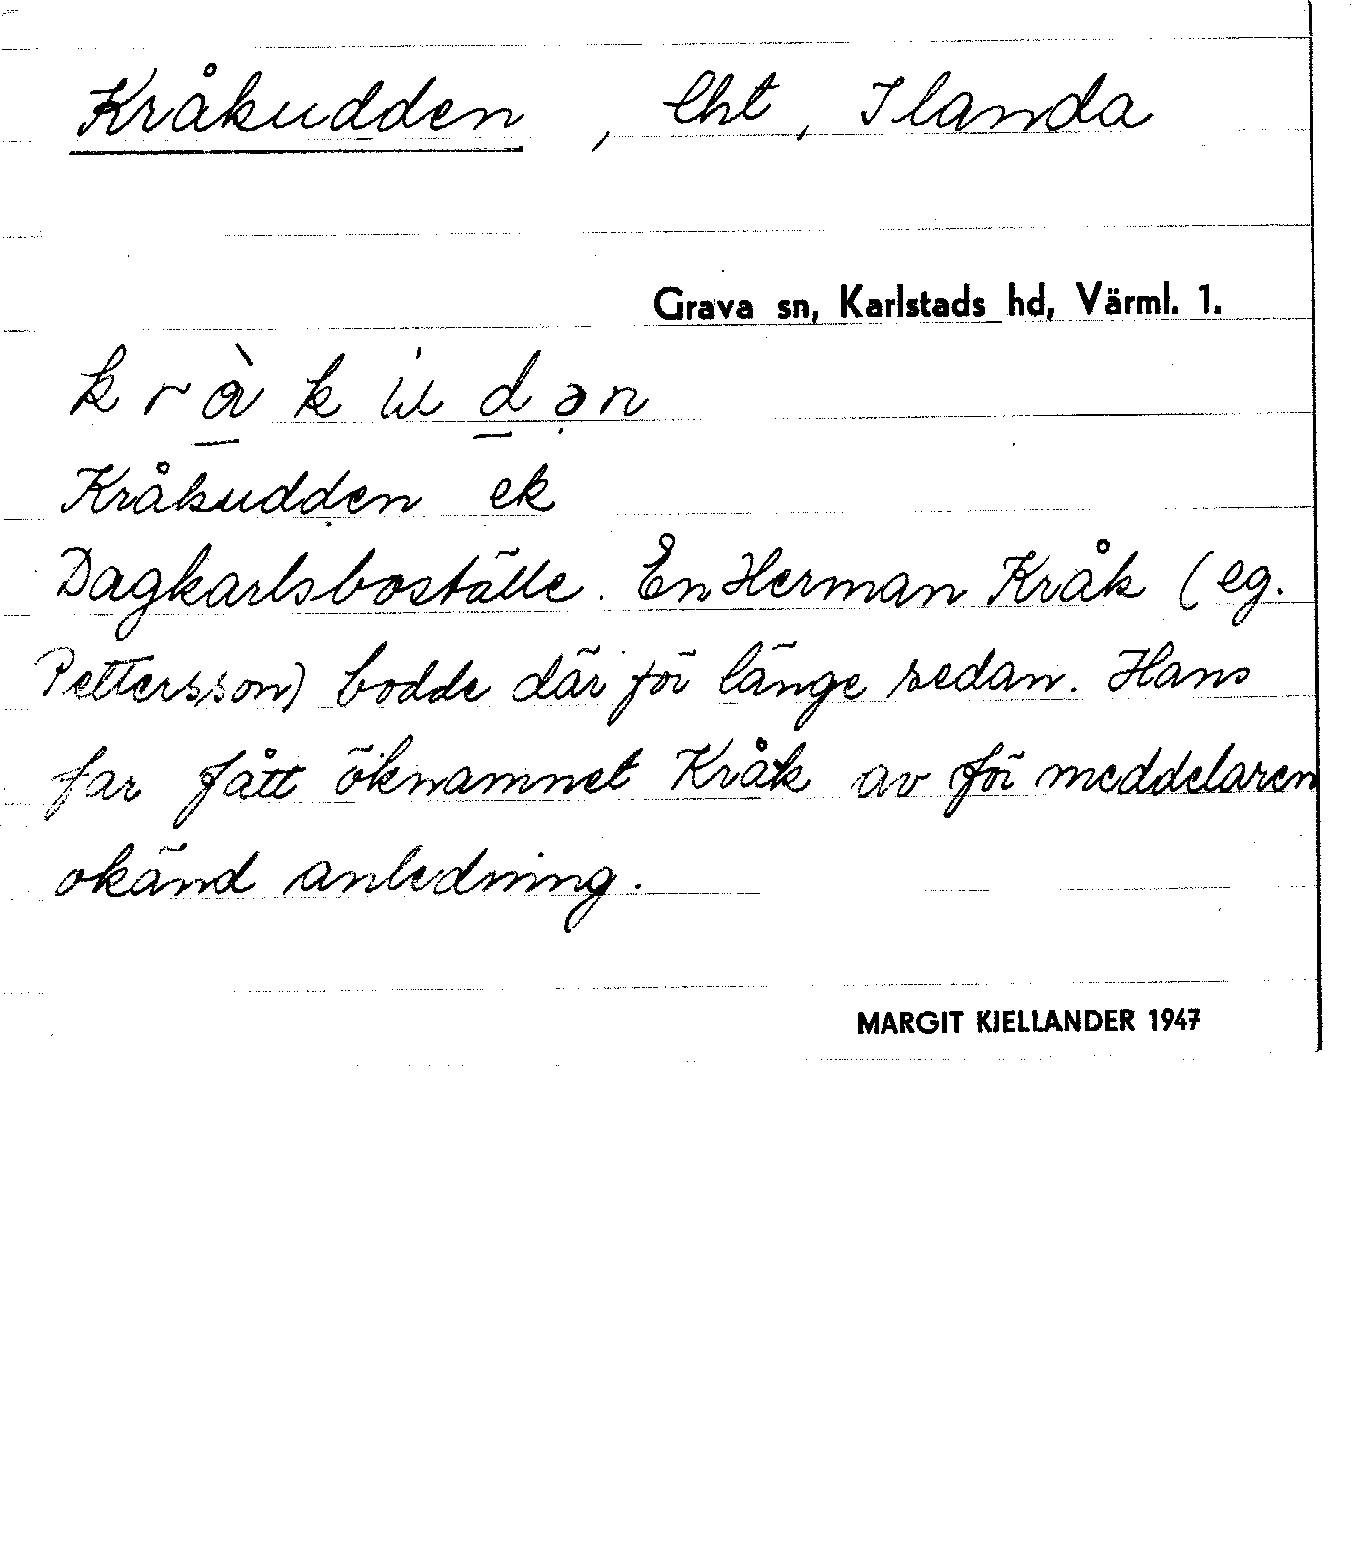 Kråkudden, lht, Ilanda
Grava sn, Karlstads hd, Värml. 1.
Kråkudden ek
Dagkarlsboställe. En Herman Kråk (eg.
Pettersson) bodde där för länge sedan. Hans
far fått öknamnet Kråk av för meddelaren
okänd anledning.
MARGIT KJELLANDER 1947